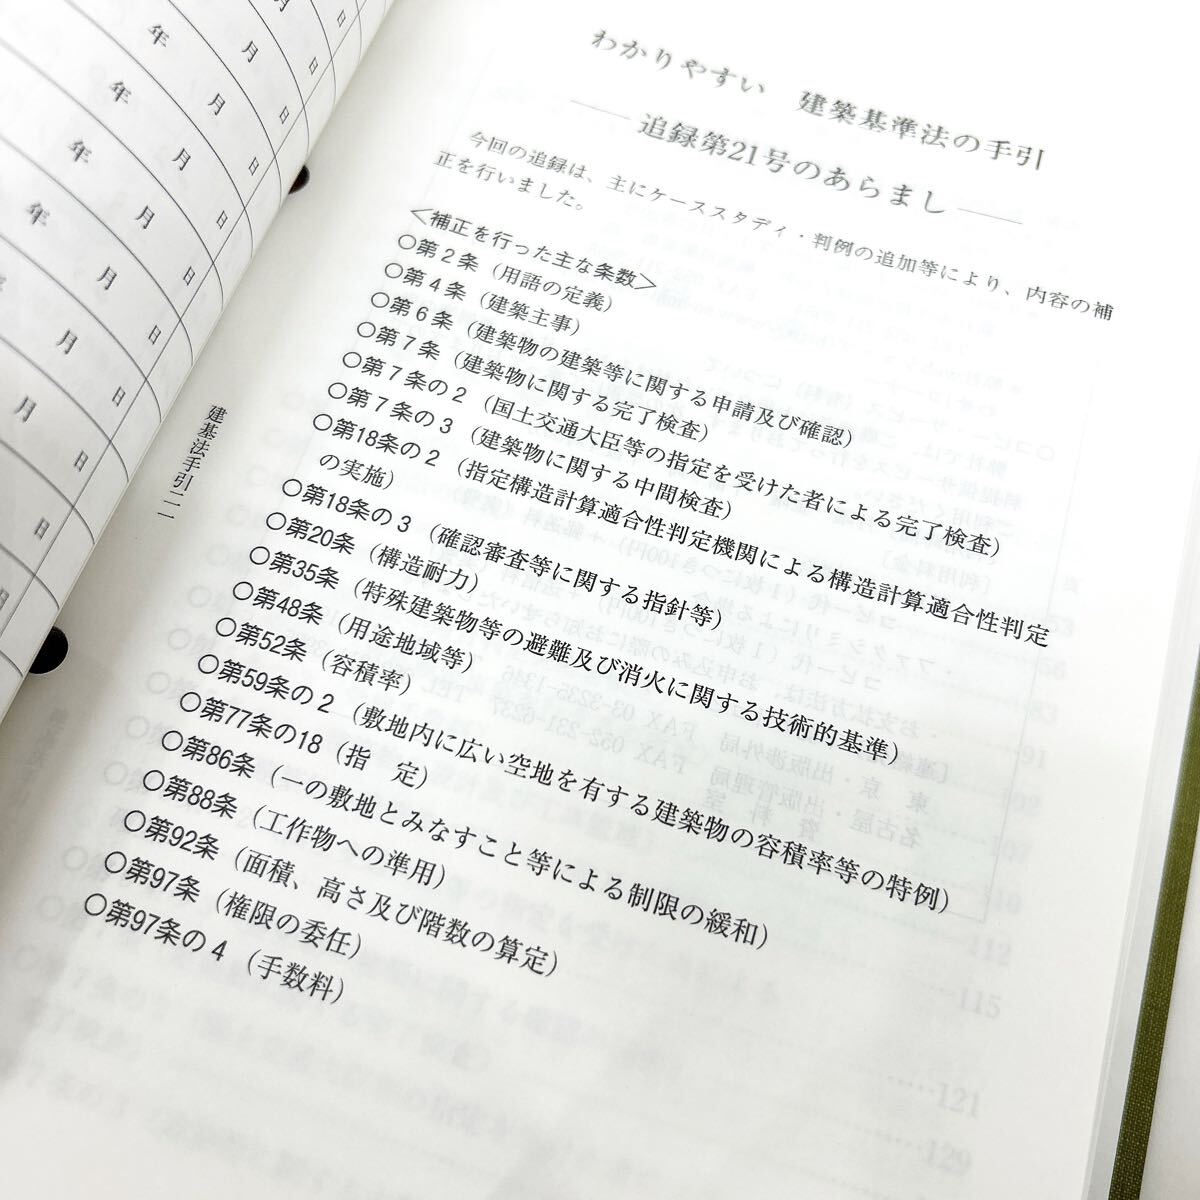 わかりやすい　建築基準法の手引
――追録第21号のあらまし――
今回の追録は、主にケーススタディ・判例の追加等により、内容の補
正を行いました。
＜補正を行った主な条数＞
○第２条（用語の定義）
○第４条（建築主事）
○第６条（建築物の建築等に関する申請及び確認）
○第７条（建築物に関する完了検査）
○第７条の２（国土交通大臣等の指定を受けた者による完了検査）
○第７条の３（建築物に関する中間検査）
○第18条の２（指定構造計算適合性判定機関による構造計算適合性判定
の実施）
○第18条の３（確認審査等に関する指針等）
○第20条（構造耐力）
○第35条（特殊建築物等の避難及び消火に関する技術的基準）
○第48条（用途地域等）
○第52条（容積率）
○第59条の２（敷地内に広い空地を有する建築物の容積率等の特例）
○第77条の18（指　定）
○第86条（一の敷地とみなすこと等による制限の緩和）
○第88条（工作物への準用）
○第92条（面積、高さ及び階数の算定）
○第97条（権限の委任）
○第97条の４（手数料）
建基法手引二一
日
年　月　日
年　月　日
年　月　日
年　月　日
月　日
月　日
月　日
月　日
日
日
91
107
112
115
121
129